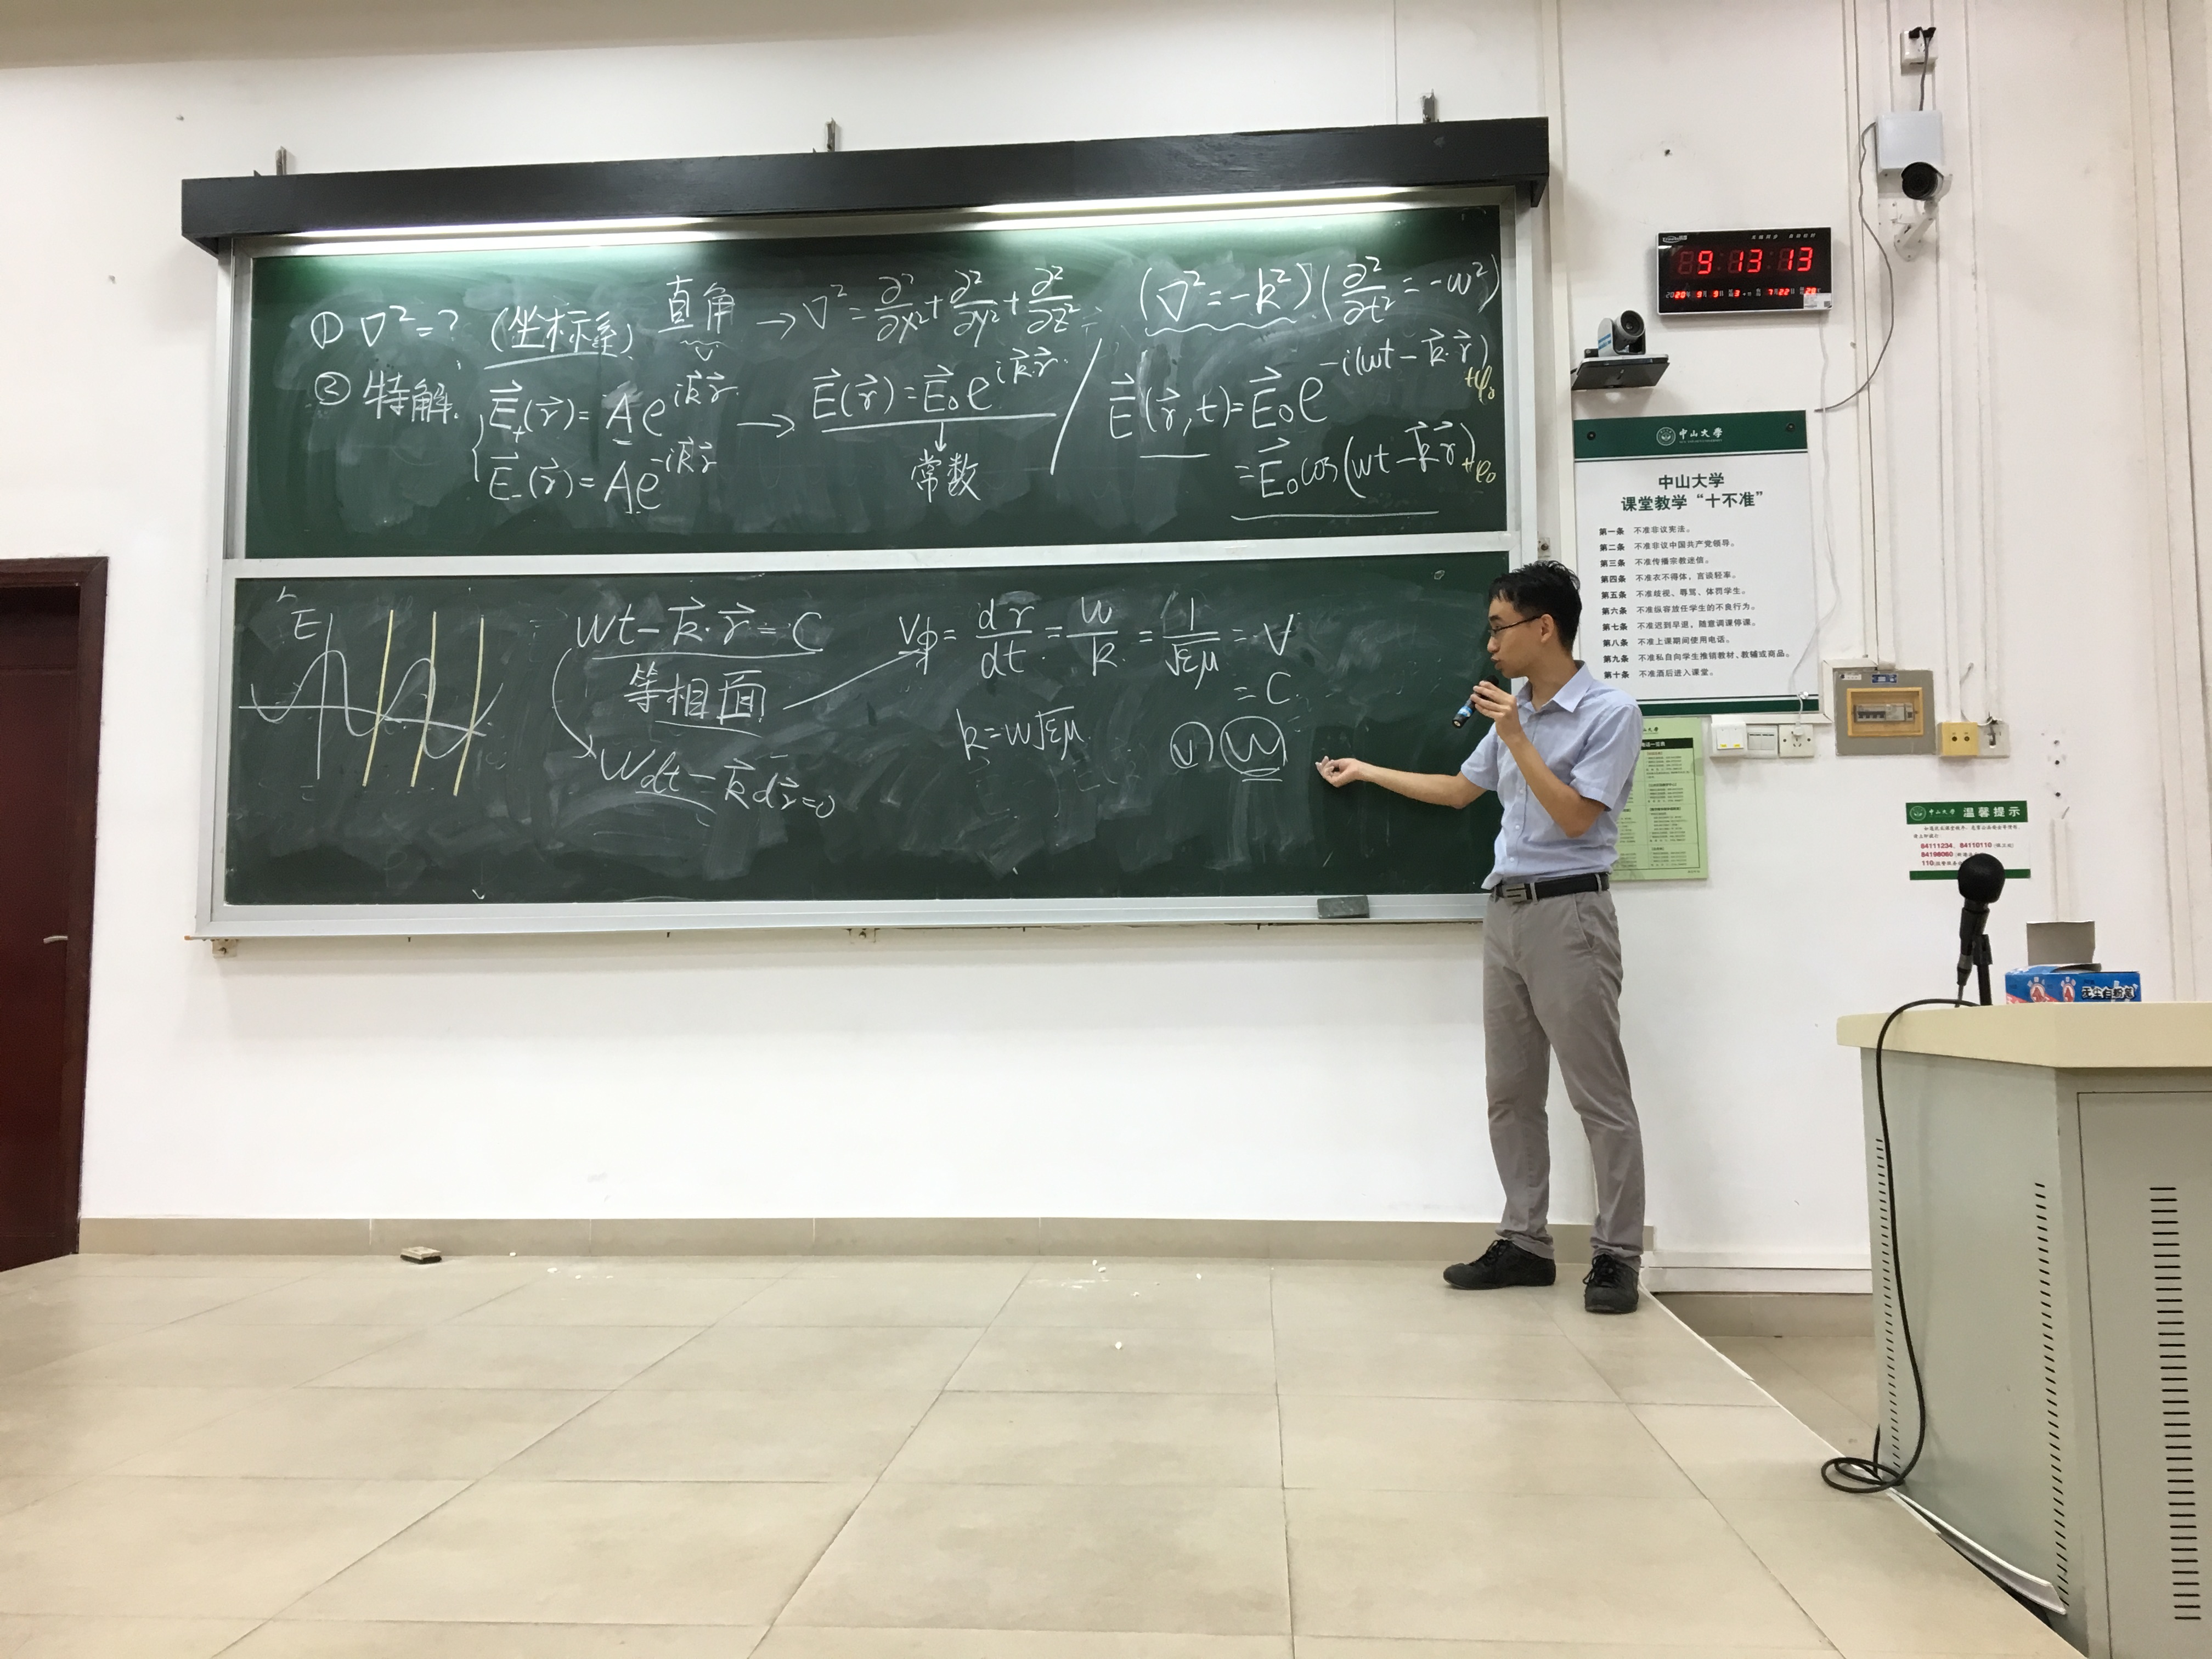 ① ∇² = ? (坐标系) 直角 → ∇² = ∂²/∂x² + ∂²/∂y² + ∂²/∂z²
(∇² = -k²) (∂²/∂t² = -w²)
② 特解.
E⃗₊(r⃗) = A e^{ik⃗·r⃗}
E⃗₋(r⃗) = A e^{-ik⃗·r⃗}
→ E⃗(r⃗) = E⃗₀ e^{ik⃗·r⃗}
常数
E⃗(r⃗,t) = E⃗₀ e^{-i(wt - k⃗·r⃗)} +φ₀
= E⃗₀ cos(wt - k⃗·r⃗) +φ₀
E
wt - k⃗·r⃗ = C
等相面
wdt - k⃗dr⃗ = 0
vϕ = dr/dt = w/k = 1/√εμ = v
= C
k = w√εμ
ⓥ ⓦ
9:13:13
中山大学
中山大学
课堂教学“十不准”
第一条 不准非议宪法。
第二条 不准非议中国共产党领导。
第三条 不准传播宗教迷信。
第四条 不准衣不得体,言谈轻率。
第五条 不准歧视、辱骂、体罚学生。
第六条 不准纵容放任学生的不良行为。
第七条 不准迟到早退,随意调课停课。
第八条 不准上课期间使用电话。
第九条 不准私自向学生推销教材、教辅或商品。
第十条 不准酒后进入课堂。
中山大学 温馨提示
84111234、84110110
84196060
110
无尘白粉笔